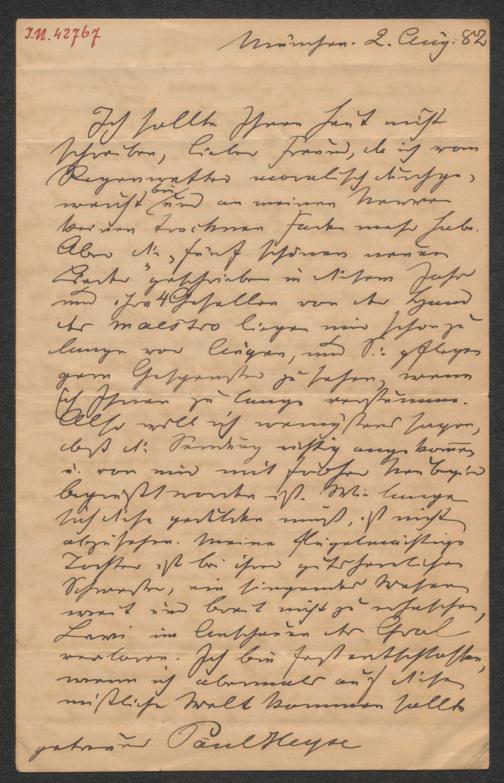 I.N. 42767
München. 2. Aug. 82
Ich sollte Ihnen heut nicht
schreiben, lieber Freund, da ich vom
Regenwetter moralisch durchge-
weicht bin und an meinen Nerven
keinen trocknen Faden mehr habe.
Aber die "fünf schönen neuen
Lieder" geschrieben in diesem Jahr
und die 4 Gesellen von der Hand
des maestro liegen mir schon zu
lange vor Augen, und Sie pflegen
gern Gespenster zu sehen, wenn
ich Ihnen zu lange verstumme.
Also will ich wenigstens sagen,
daß die Sendung richtig angekommen
u. von mir mit froher Neubegier
begrüßt worden ist. Wie lange
sich diese gedulden muß, ist nicht
abzusehen. Meine flügelmächtige
Tochter ist bei ihrer gutsherrlichen
Schwester, ein singendes Wesen
weit und breit nicht zu erhaschen,
Levi im Anschauen des Gral
verloren. Ich bin fest entschlossen,
wenn ich abermals auf diese
mißliche Welt kommen sollte
getreuer Paul Heyse